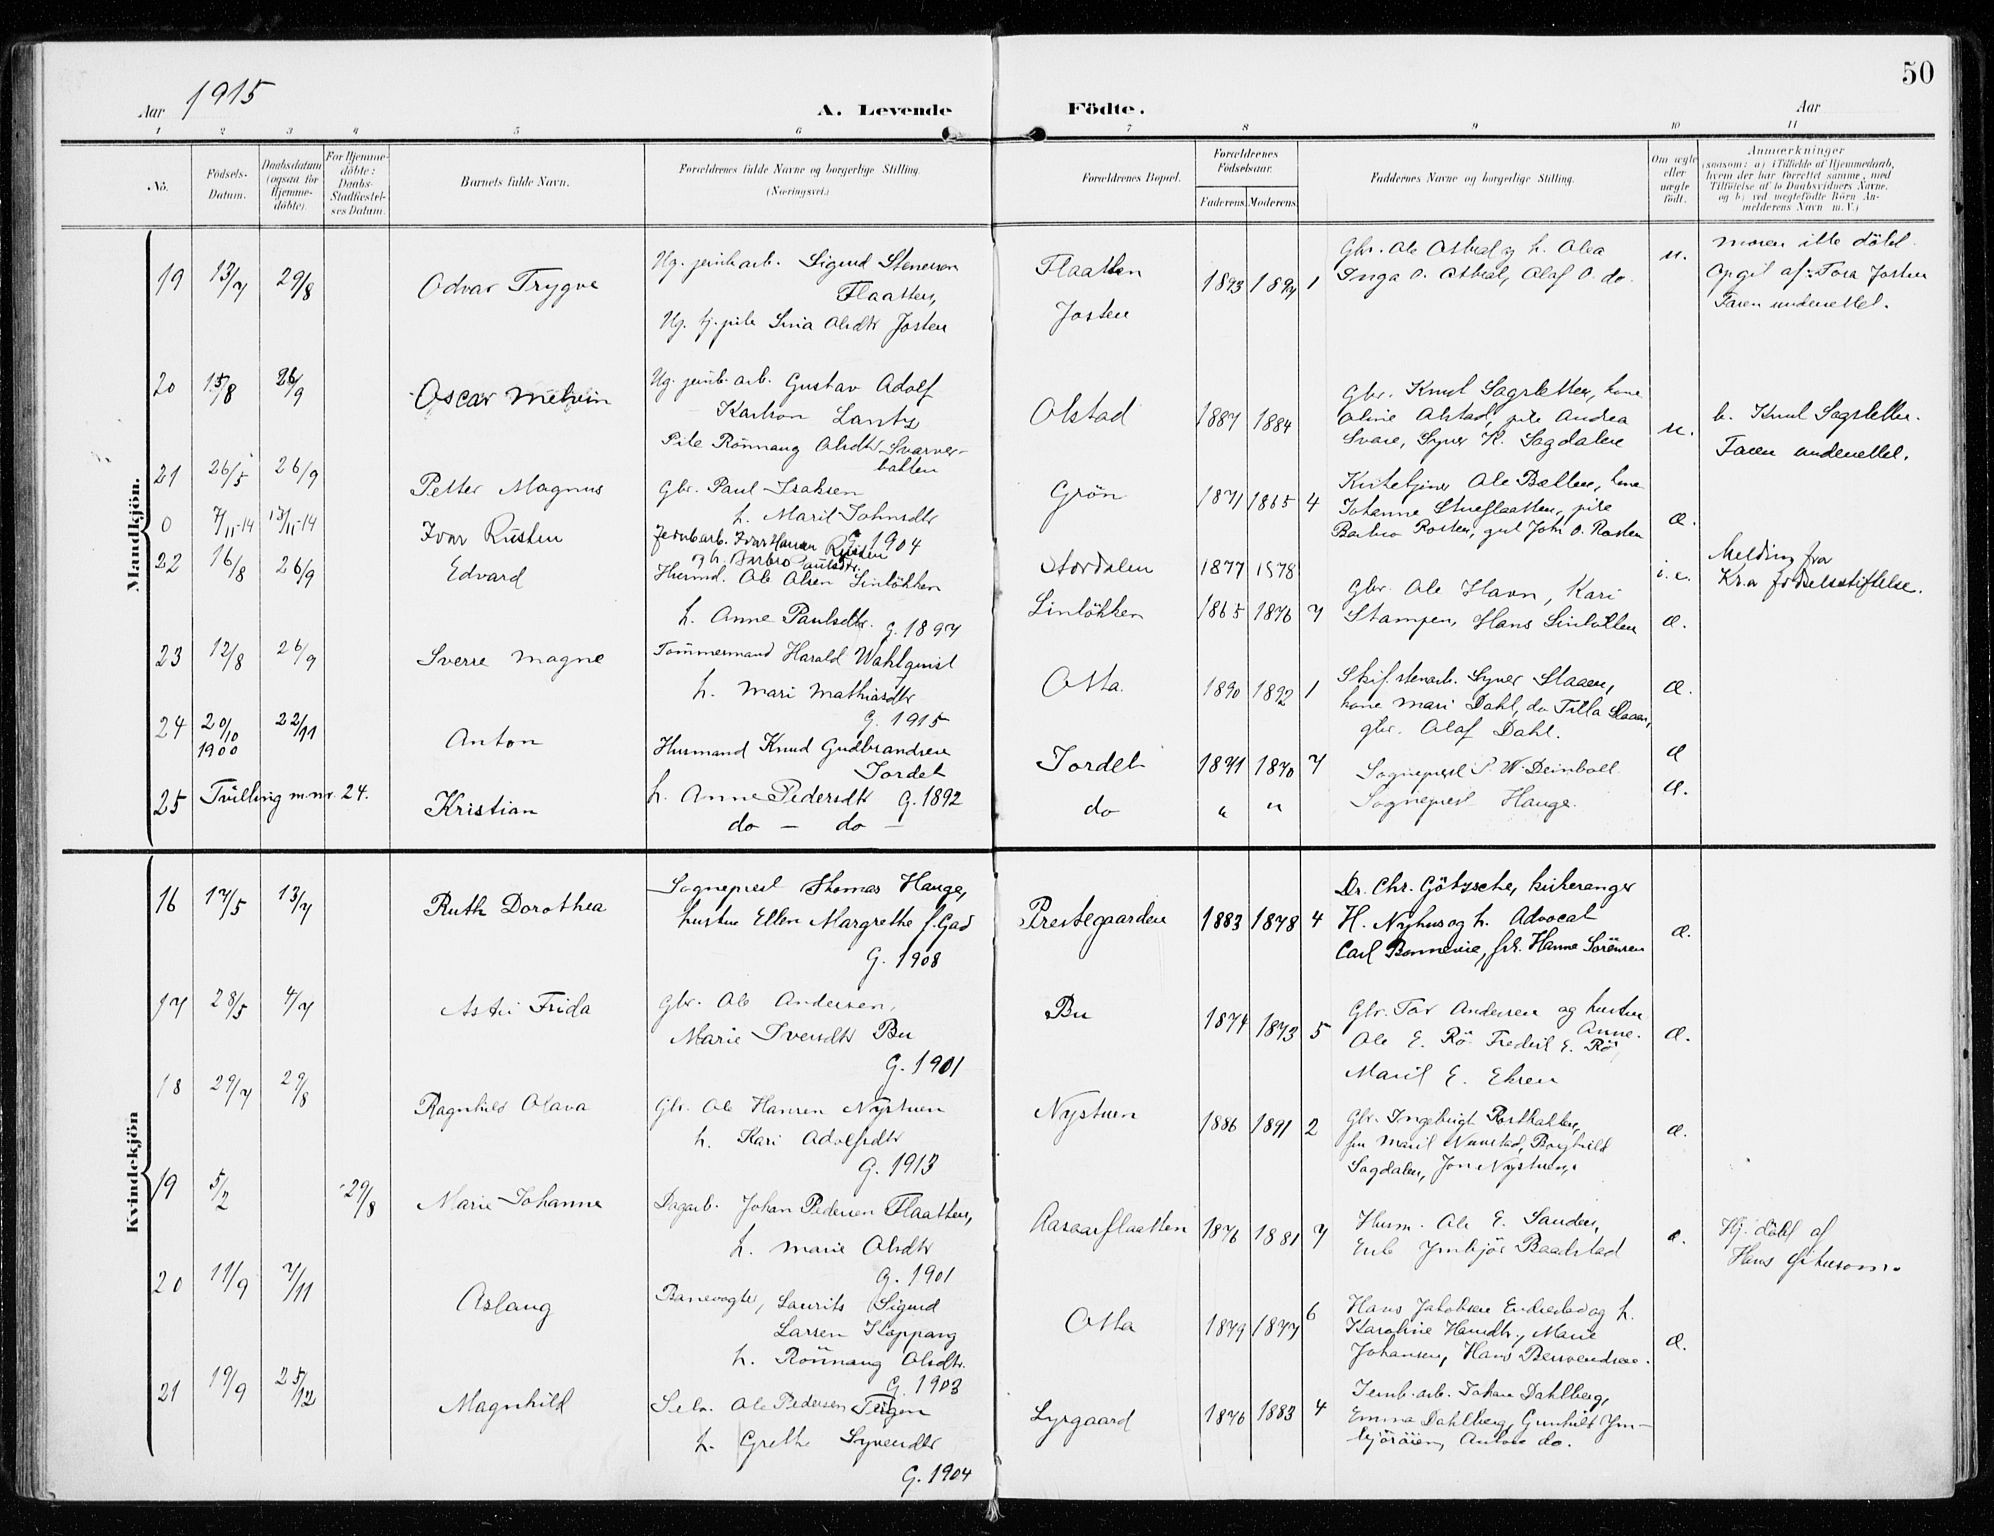 50
Aar 1915
A. Levende Födte.
Aar
1 2 3 4 5 6 7 8 9 10 11
No.
Födsels-Datum.
Daabsdatum (ogsaa for Hjemme-döbte).
For Hjemme-döbte: Daabs-Stadfæstel-ses Datum.
Barnets fulde Navn.
Forældrenes fulde Navne og borgerlige Stilling. (Næringsvei.)
Forældrenes Bopæl.
Forældrenes Födselsaar.
Faderens. Moderens.
Faddernes Navne og borgerlige Stilling.
Om ægte eller uægte födt.
Anmærkninger
(saasom: a) i Tilfælde af Hjemmedaab, hvem der har forrettet samme, med Tilföielse af to Daabsvidners Navne, og b) ved uægtefödte Börn An-melderens Navn m.V.)
Mandkjön.
19 13/7 29/8 Odvar Trygve
Ug. jernb.arb. Sigurd Stenersen
Flaatten,
Ug. tj.pike Olsdtr Josten
Flaatten
Josten
1893 1894 1
Gbr. Ole og h. Olea
Inga O. Olaf O. do.
u.
moren ikke döbt.
Opgit af: Tora Josten
Faren underrettet.
20 15/8 26/9 Oscar
Ug. jernb. arb. Gustav Adolf
Karlson Lantz
Pike Rönnaug Olsdtr Svarver-
bakken
Olstad
1887 1884
Gbr. Knut Sagsletten, kone
Oline Olstad, pike Andrea
Svare, Syver K. Sagdalen
u.
b. Knut Sagsletten.
Faren underrettet.
21 26/5 26/9 Petter Magnus
Gbr. Paul Isaksen
h. Marit Johnsdtr
G. 1904
Grön
1871 1865 4
Kirketjener Ole Bakken, kone
Johanne Stueflaatten, pike
Barbro Rosten, gut John O. Rosten
æ.
0 7/11-14 13/11-14 Ivar Rusten
Jernbarb. Ivar Hansen Rusten
og h. Barbro Paulsdtr.
Stordalen
1877 1878
i. e.
Melding fra
Kr.a födselsstiftelse.
22 16/8 26/9 Edvard
Husmd. Ole Olsen Linlökken
h. Anne Paulsdtr. G. 1897
Linlökken
1865 1876 7
Gbr. Ole Havn, Kari
Stampen, Hans Linlökken
æ.
23 12/8 26/9 Sverre Magne
Tömmermand Harald Wahlquist
h. Mari Mathiasdtr
G. 1915
Otta.
1890 1892 1
Skifersten arb. Syver Slaaen,
kone Mari Dahl, do Tilla Slaaen,
gbr. Olaf Dahl.
æ.
24 20/10 1900 22/11 Anton
Husmand Knud Gudbrandsen
Jordet
h. Anne Pedersdtr G. 1892
Jordet
1871 1870 7
Sogneprest P. W. Deinboll
æ
25 Tvilling m. nr. 24. Kristian
do — do —
do
" "
Sogneprest Hauge.
æ.
Kvindekjön
16 17/5 13/7 Ruth Dorothea
Sogneprest Thomas Hauge,
hustru Ellen Margrethe f. Gad
G. 1908
Prestegaarden
1883 1878 4
Dr. Chr. Götzsche, kirkesanger
H. Nyhus og h. Advocat
Carl Bonnevie, frk. Hanne Sörensen
æ.
17 28/5 4/7 Astri Frida
Gbr. Ole Andersen,
Marie Svensdtr Bu
G. 1901
Bu
1874 1873 5
Gbr. Tor Andersen og hustru
Anne.
Ole E. Rö. Fredrik E. Rö,
Marit E. Ekren
æ.
18 29/7 29/8 Ragnhild Olava
Gbr. Ole Hansen Nystuen
h. Kari Adolfsdtr
G. 1913
Nystuen
1886 1891 2
Gbr. Ingebrigt
fru Marit Borghild
Sagdalen, Jon Nystuen.
æ.
19 5/2 29/8 Marie Johanne
Dagarb. Johan Pedersen Flaatten,
h. Marie Olsdtr
G. 1901
Aasaarflaatten
1876 1881 7
Husm. Ole E. Sanden,
Baalstad
æ.
Hj. döbt af
Hans
20 11/9 7/11 Aslaug
Banevogter, Laurits Sigurd
Larsen Koppang
h. Rönnaug Olsdtr.
G. 1903
Otta
1879 1877 6
Hans Jakobsen og h.
Karoline Hansdtr., Marie
Johansen, Hans
æ.
21 19/9 25/12 Magnhild
Selv. Ole Pedersen
h. Grethe Syversdtr
G. 1904
Lyrgaard
1876 1883 4
Jernb. arb. Johan Dahlberg,
Emma Dahlberg, Gunhild
Antone do.